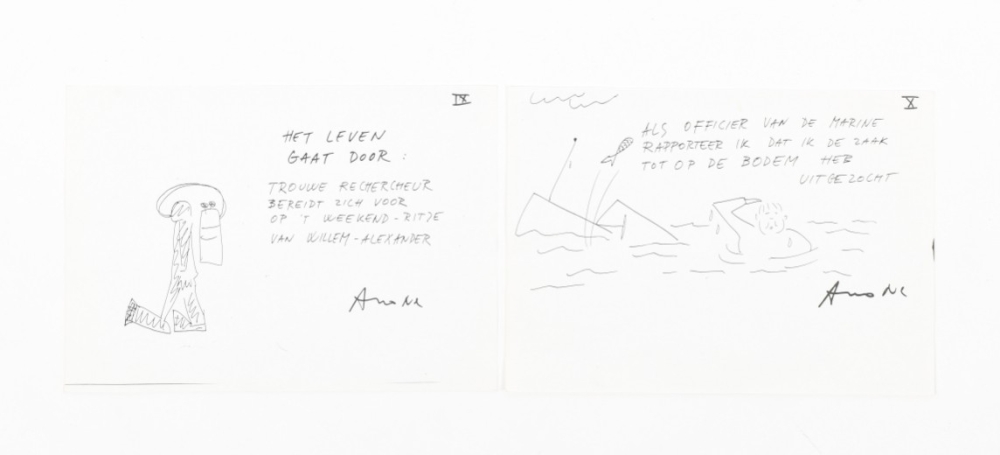 IX
HET LEVEN
GAAT DOOR:
TROUWE RECHERCHEUR
BEREIDT ZICH VOOR
OP 'T WEEKEND-RITJE
VAN WILLEM-ALEXANDER
X
ALS OFFICIER VAN DE MARINE
RAPPORTEER IK DAT IK DE ZAAK
TOT OP DE BODEM HEB
UITGEZOCHT